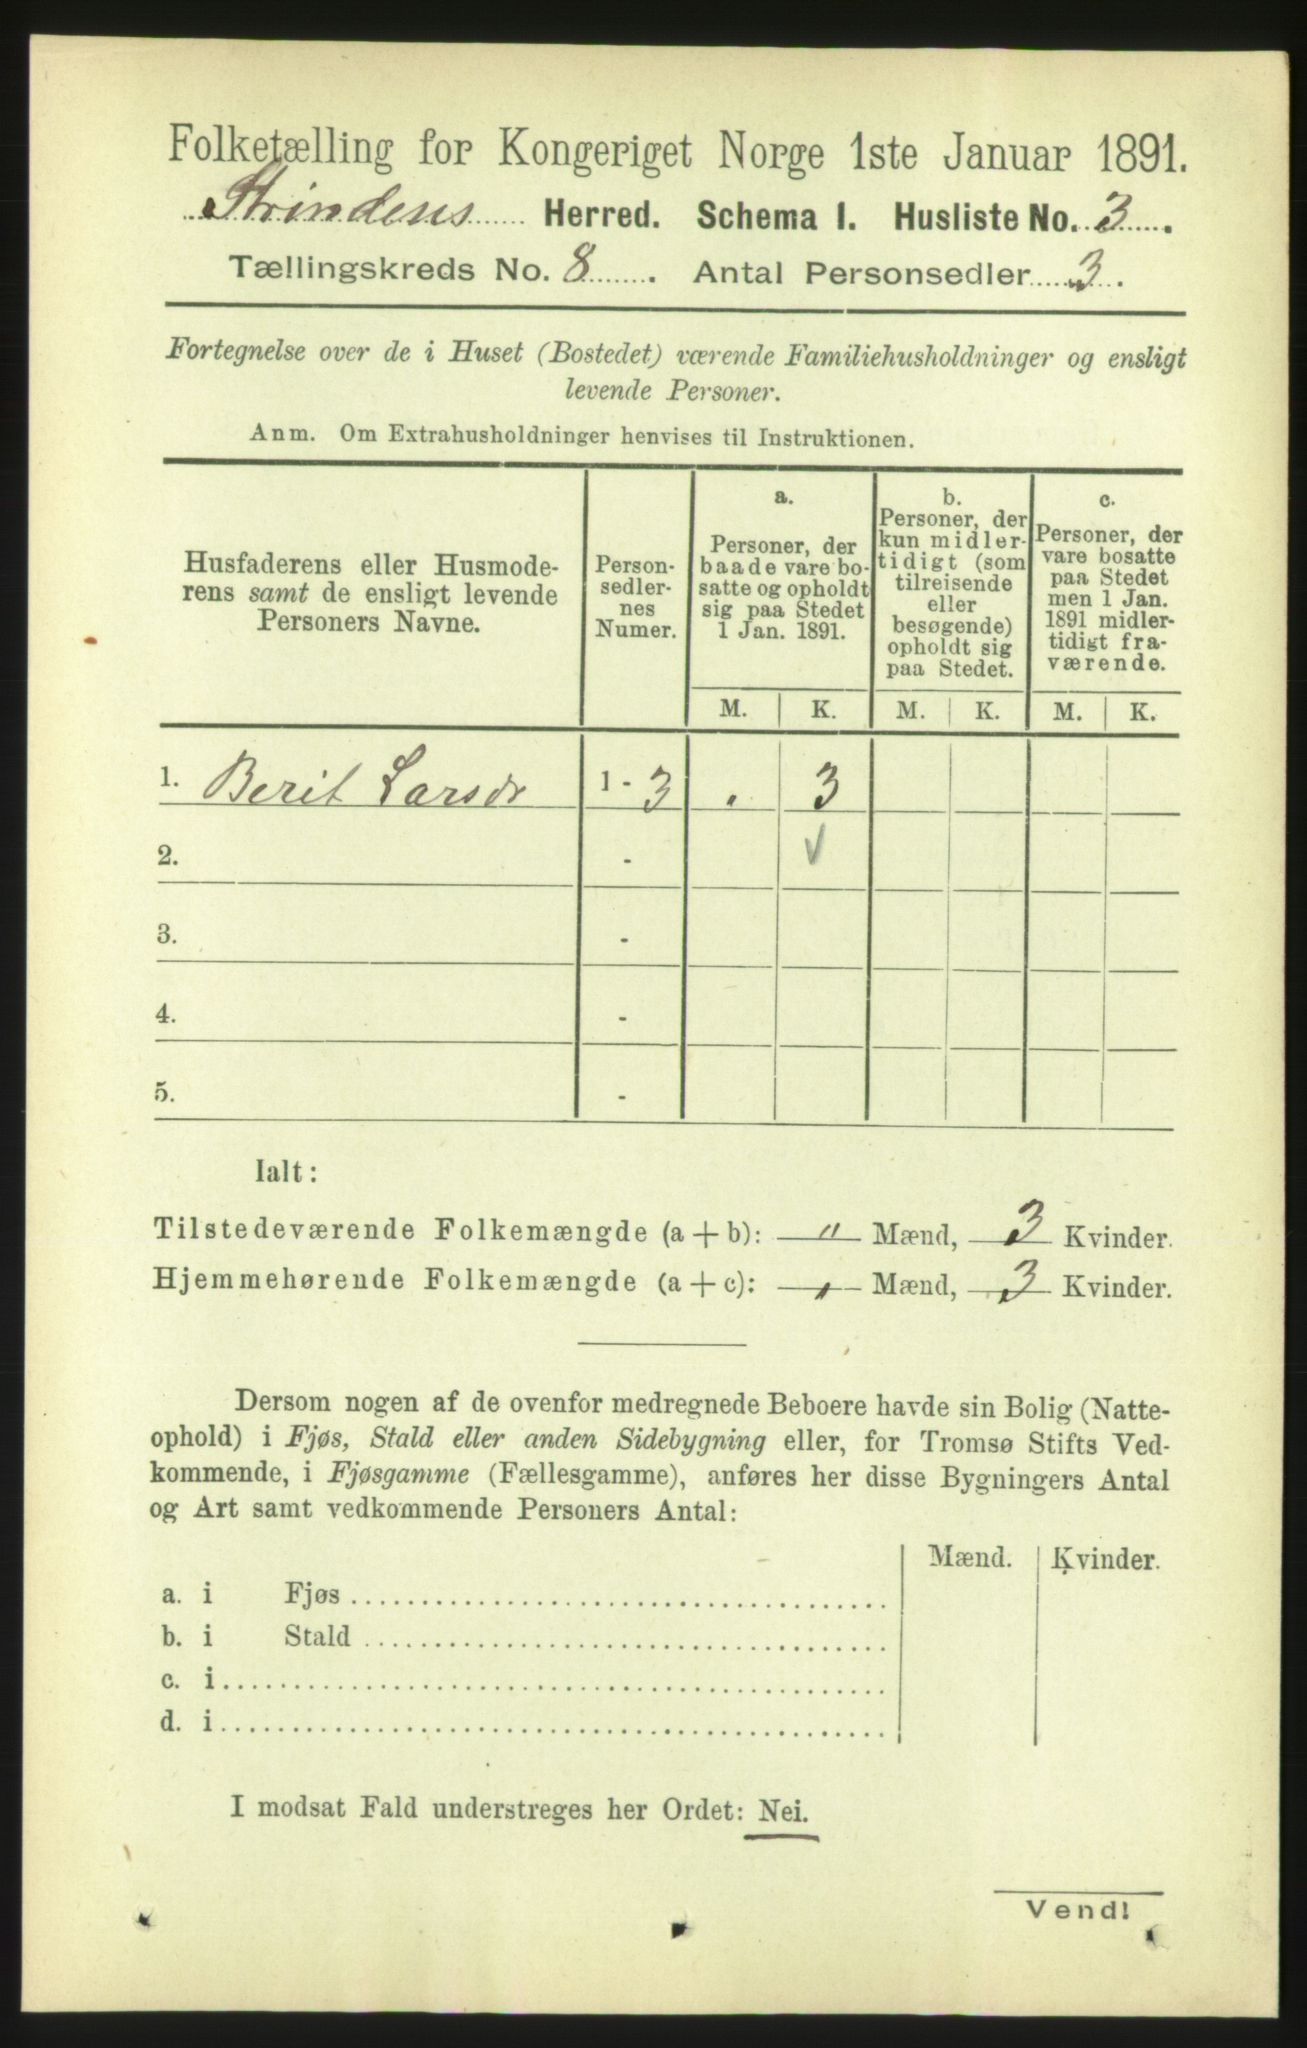 Folketælling for Kongeriget Norge 1ste Januar 1891.
Strindens Herred. Schema 1. Husliste No. 3.
Tællingskreds No. 8. Antal Personsedler 3.
Fortegnelse over de i Huset (Bostedet) værende Familiehusholdninger og ensligt
levende Personer.
Anm. Om Extrahusholdninger henvises til Instruktionen.
Husfaderens eller Husmode-
rens samt de ensligt levende
Personers Navne.
Person-
sedler-
nes
Numer.
a.
Personer, der
baade vare bo-
satte og opholdt
sig paa Stedet
1 Jan. 1891.
b.
Personer, der
kun midler-
tidigt (som
tilreisende
eller
besøgende)
opholdt sig
paa Stedet.
c.
Personer, der
vare bosatte
paa Stedet
men 1 Jan.
1891 midler-
tidigt fra-
værende.
M. K. M. K. M. K.
1. Berit Larsdr 1 - 3 " 3
2. -
3. -
4. -
5. -
Ialt:
Tilstedeværende Folkemængde (a + b): " Mænd, 3 Kvinder.
Hjemmehørende Folkemængde (a + c): " Mænd, 3 Kvinder.
Dersom nogen af de ovenfor medregnede Beboere havde sin Bolig (Natte-
ophold) i Fjøs, Stald eller anden Sidebygning eller, for Tromsø Stifts Ved-
kommende, i Fjøsgamme (Fællesgamme), anføres her disse Bygningers Antal
og Art samt vedkommende Personers Antal:
Mænd. Kvinder.
a. i Fjøs
b. i Stald
c. i
d. i
I modsat Fald understreges her Ordet: Nei.
Vend!